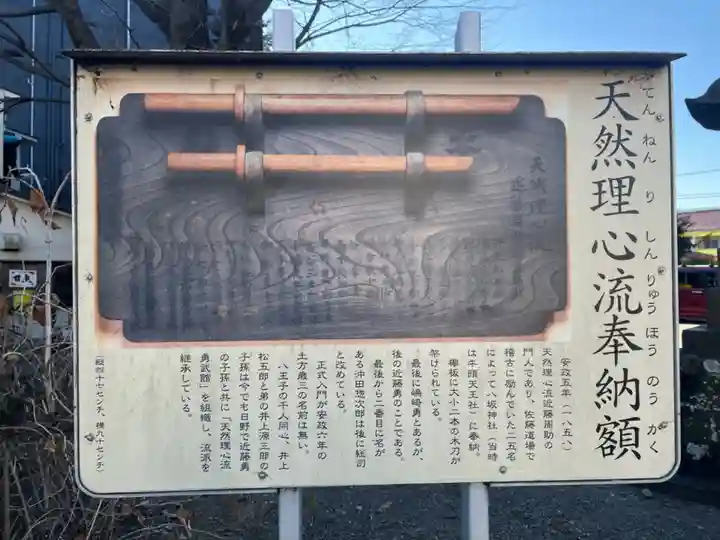 天然理心流奉納額
てんねんりしんりゅうほうのうがく
安政五年(一八五八)
天然理心流近藤周助の
門人であり、佐藤道場で
稽古に励んでいた二五名
によって八坂神社(当時
は牛頭天王社)に奉納。
欅板に大小二本の木刀が
架けられている。
最後に嶋崎勇とあるが、
後の近藤勇のことである。
最後から二番目に名が
ある沖田惣次郎は後に総司
と改めている。
正式入門が安政六年の
土方歳三の名前は無い。
八王子の千人同心、井上
松五郎と弟の井上源三郎の
子孫は今でも日野で近藤勇
の子孫と共に「天然理心流
勇武館」を組織し、流派を
継承している。
(縦四十七センチ、横九十センチ)
天然理心